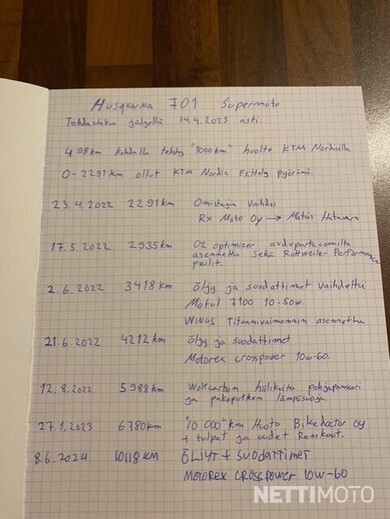 Husqvarna 701 Supermoto
Tehdastakuu jäljellä 14.4.2023 asti.
498km kohdalla tehty "1000km" huolto KTM Nordicilla
0-2291 km ollut KTM Nordic Esittely pyöränä.
23.4.2022 2291 km Omistajan vaihdos
RX Moto Oy → Matias
17.5.2022 2935km O2 optimizer
asennettu sekä Rottweiler Performance
peilit.
2.6.2022 3418 km Öljy ja suodattimet vaihdettu
Motul 7100 10-50w.
WINGS Titaanivaimennin asennettu
21.6.2022 4212 km Öljy ja suodattimet
Motorex crosspower 10w-60.
12.8.2022 5989 km hiilikuitu pohjapanssari
ja pakoputken lämpösuoja
27.1.2023 6780km "10 000" km Huolto Bikedoctor Oy
+ tulpat ja uudet Renkaat.
8.6.2024 10118 KM ÖLJYT + suodattimet
Motorex crosspower 10w-60
NETTIMOTO